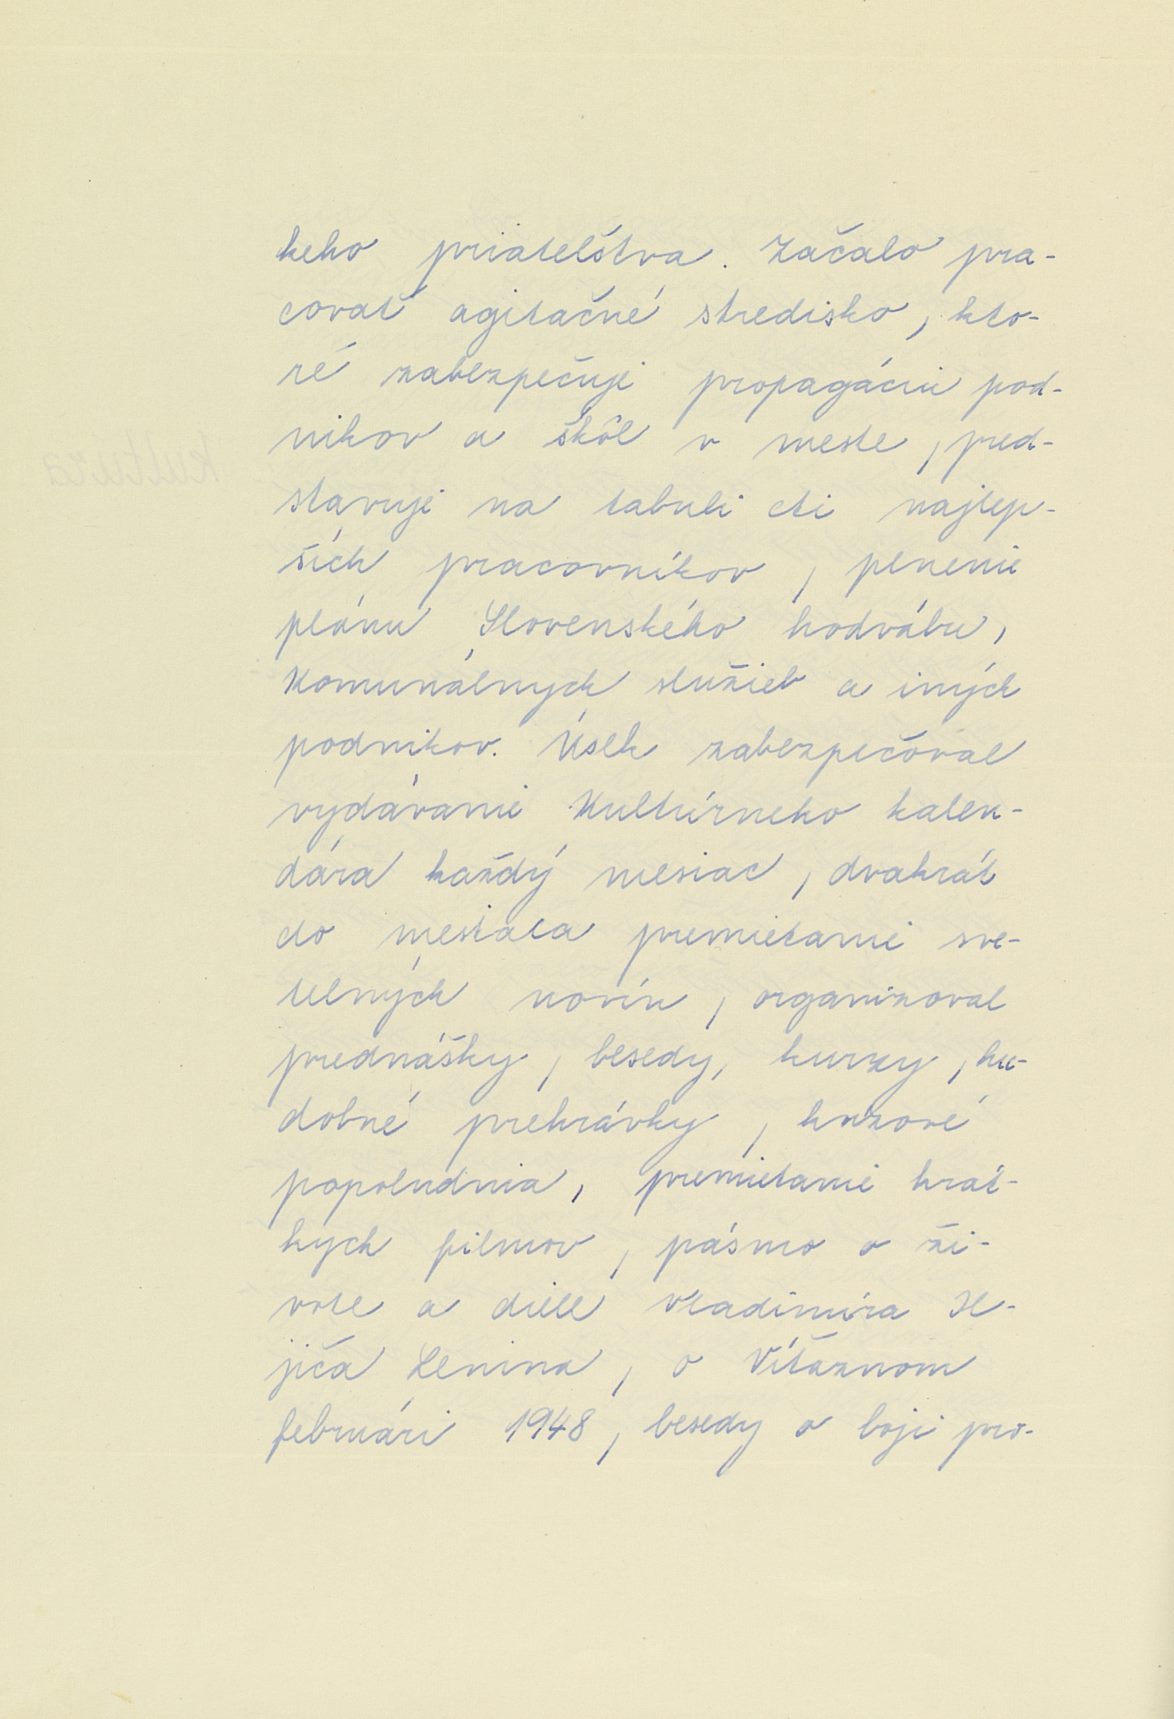 keho priatelstva. Začalo pra-
covať agitačné stredisko, kto-
ré zabezpečuje propagáciu pod-
nikov a škôl v meste, pred-
stavuje na tabuli cti najlep-
ších pracovníkov, plnenie
plánu Slovenského hodvábu,
Komunálnych služieb a iných
podnikov. Úsek zabezpečoval
vydávanie Kultúrneho kalen-
dára každý mesiac, dvakrát
do mesiaca premietanie sve-
telných novín, organizoval
prednášky, besedy, kurzy, hu-
dobné prehrávky, kvízové
popoludnia, premietanie krát-
kych filmov, pásmo o ži-
vote a diele Vladimíra Il-
jiča Lenina, o Víťaznom
februári 1948, besedy o boji pro-
kultúra